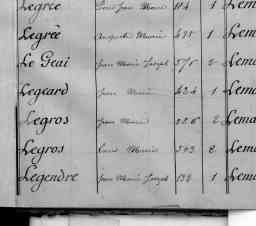 Legrée Louis Jean Marie 114 1 Lema
Legrée Auguste Marie 1 Lem
Le Geai Jean Marie Joseph 575 2 Lema
Legeard Jean Marie 424 1 Lema
Legros Jean Marie 226 2 Lema
Legros Louis Marie 543 8 Lema
Legendre Jean Marie Joseph 132 1 Lema